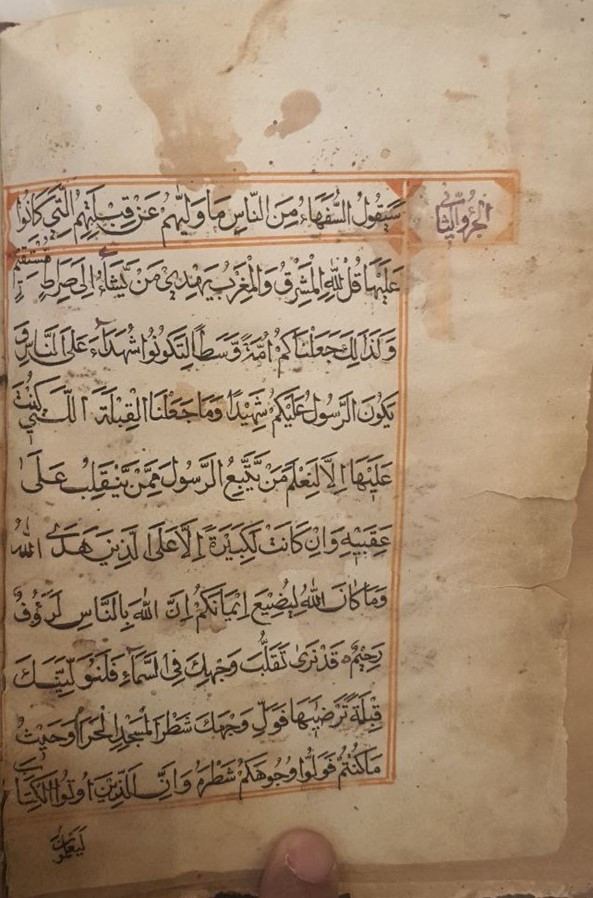 الجزو الثاني
سَيَقُولُ السُّفَهَاءُ مِنَ النَّاسِ مَا وَلّٰيهُمْ عَنْ قِبْلَتِهِمُ الَّتِي كَانُوا
عَلَيْهَا قُلْ لِلّٰهِ الْمَشْرِقُ وَالْمَغْرِبُ يَهْدِي مَنْ يَشَاءُ اِلٰى صِرَاطٍ مُسْتَقِيمٍ
وَكَذٰلِكَ جَعَلْنَاكُمْ اُمَّةً وَسَطًا لِتَكُونُوا شُهَدَاءَ عَلَى النَّاسِ وَ
يَكُونَ الرَّسُولُ عَلَيْكُمْ شَهِيدًا وَمَا جَعَلْنَا الْقِبْلَةَ الَّتِي كُنْتَ
عَلَيْهَا اِلَّا لِنَعْلَمَ مَنْ يَتَّبِعُ الرَّسُولَ مِمَّنْ يَنْقَلِبُ عَلٰى
عَقِبَيْهِ وَاِنْ كَانَتْ لَكَبِيرَةً اِلَّا عَلَى الَّذِينَ هَدَى اللّٰهُ
وَمَا كَانَ اللّٰهُ لِيُضِيعَ اِيمَانَكُمْ اِنَّ اللّٰهَ بِالنَّاسِ لَرَؤُفٌ
رَحِيمٌ قَدْ نَرٰى تَقَلُّبَ وَجْهِكَ فِي السَّمَاءِ فَلَنُوَلِّيَنَّكَ
قِبْلَةً تَرْضٰيهَا فَوَلِّ وَجْهَكَ شَطْرَ الْمَسْجِدِ الْحَرَامِ وَحَيْثُ
مَا كُنْتُمْ فَوَلُّوا وُجُوهَكُمْ شَطْرَهُ وَاِنَّ الَّذِينَ اُوتُوا الْكِتَابَ
لَيَعْلَمُونَ